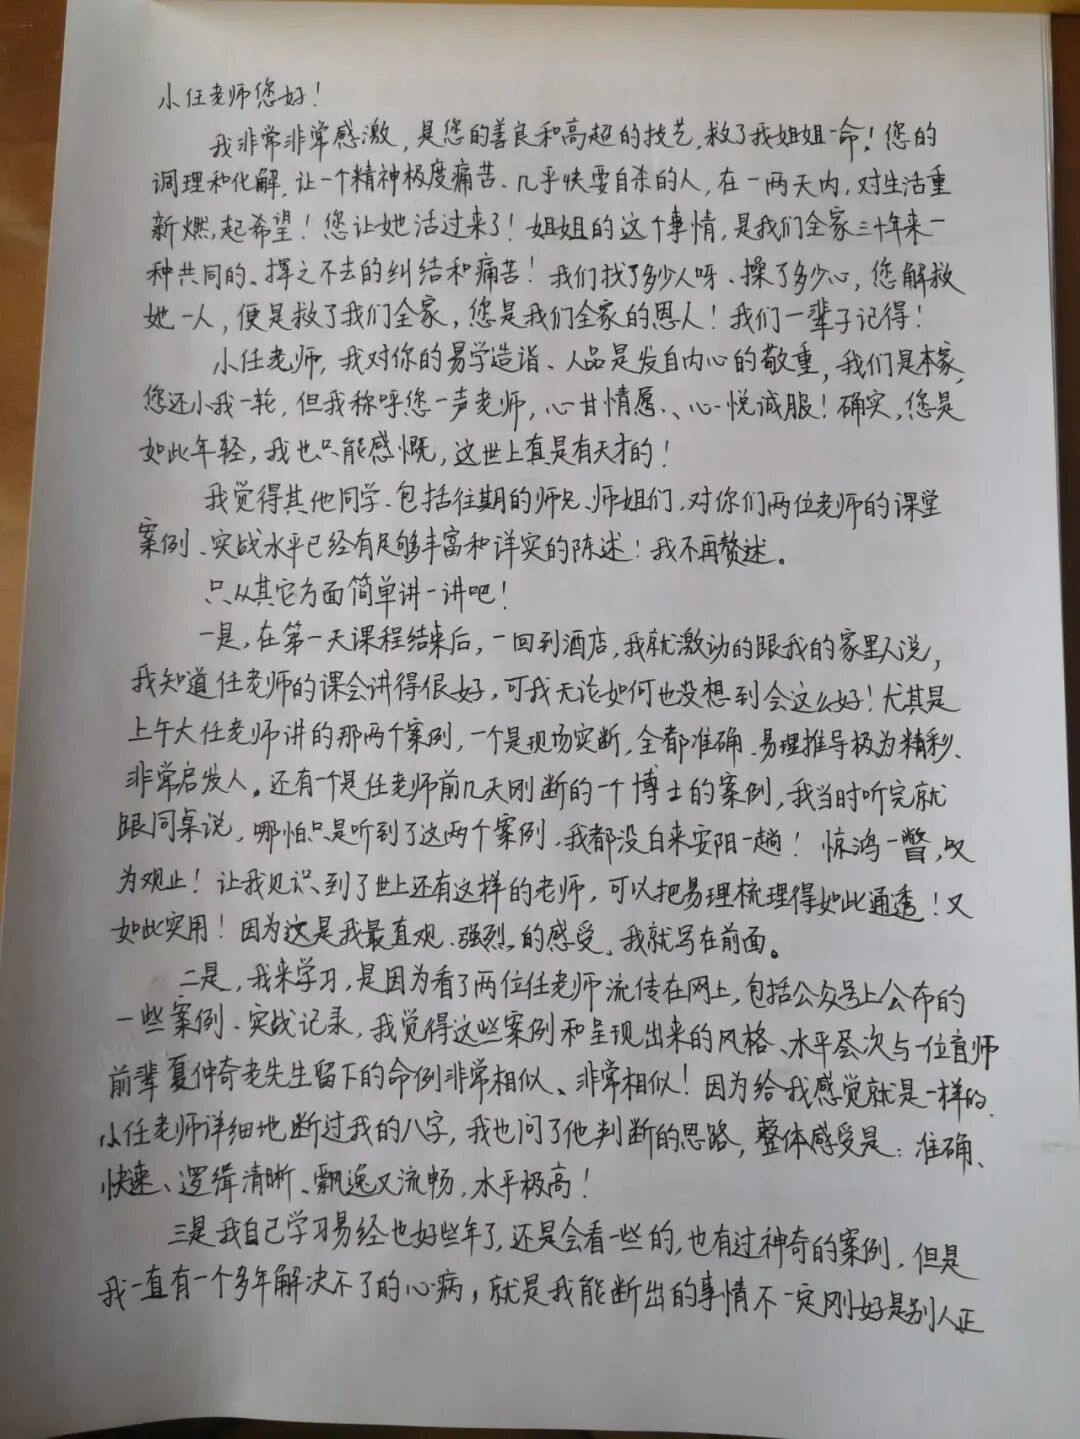 小任老师您好！
我非常非常感激，是您的善良和高超的技艺，救了我姐姐一命！您的
调理和化解，让一个精神极度痛苦、几乎快要自杀的人，在一两天内，对生活重
新燃起希望！您让她活过来了！姐姐的这个事情，是我们全家三十年来一
种共同的、挥之不去的纠结和痛苦！我们找了多少人呀、操了多少心，您解救
她一人，便是救了我们全家，您是我们全家的恩人！我们一辈子记得！
小任老师，我对你的易学造诣、人品是发自内心的敬重，我们是本家，
您还小我一轮，但我称呼您一声老师，心甘情愿、心悦诚服！确实，您是
如此年轻，我也只能感慨，这世上真是有天才的！
我觉得其他同学、包括往期的师兄、师姐们，对你们两位老师的课堂
案例、实战水平已经有足够丰富和详实的陈述！我不再赘述。
只从其它方面简单讲一讲吧！
一是，在第一天课程结束后，一回到酒店，我就激动的跟我的家里人说，
我知道任老师的课会讲得很好，可我无论如何也没想到会这么好！尤其是
上午大任老师讲的那两个案例，一个是现场实断，全都准确、易理推导极为精彩、
非常启发人。还有一个是任老师前几天刚断的一个博士的案例，我当时听完就
跟同桌说，哪怕只是听到了这两个案例，我都没白来安阳一趟！惊鸿一瞥，叹
为观止！让我见识到了世上还有这样的老师，可以把易理梳理得如此通透！又
如此实用！因为这是我最直观、强烈的感受，我就写在前面。
二是，我来学习，是因为看了两位任老师流传在网上，包括公众号上公布的
一些案例、实战记录，我觉得这些案例和呈现出来的风格、水平层次与一位盲师
前辈夏仲奇老先生留下的命例非常相似、非常相似！因为给我感觉就是一样的.
小任老师详细地断过我的八字，我也问了他判断的思路，整体感受是：准确、
快速、逻辑清晰、飘逸又流畅，水平极高！
三是我自己学习易经也好些年了，还是会看一些的，也有过神奇的案例，但是
我一直有一个多年解决不了的心病，就是我能断出的事情不一定刚好是别人正